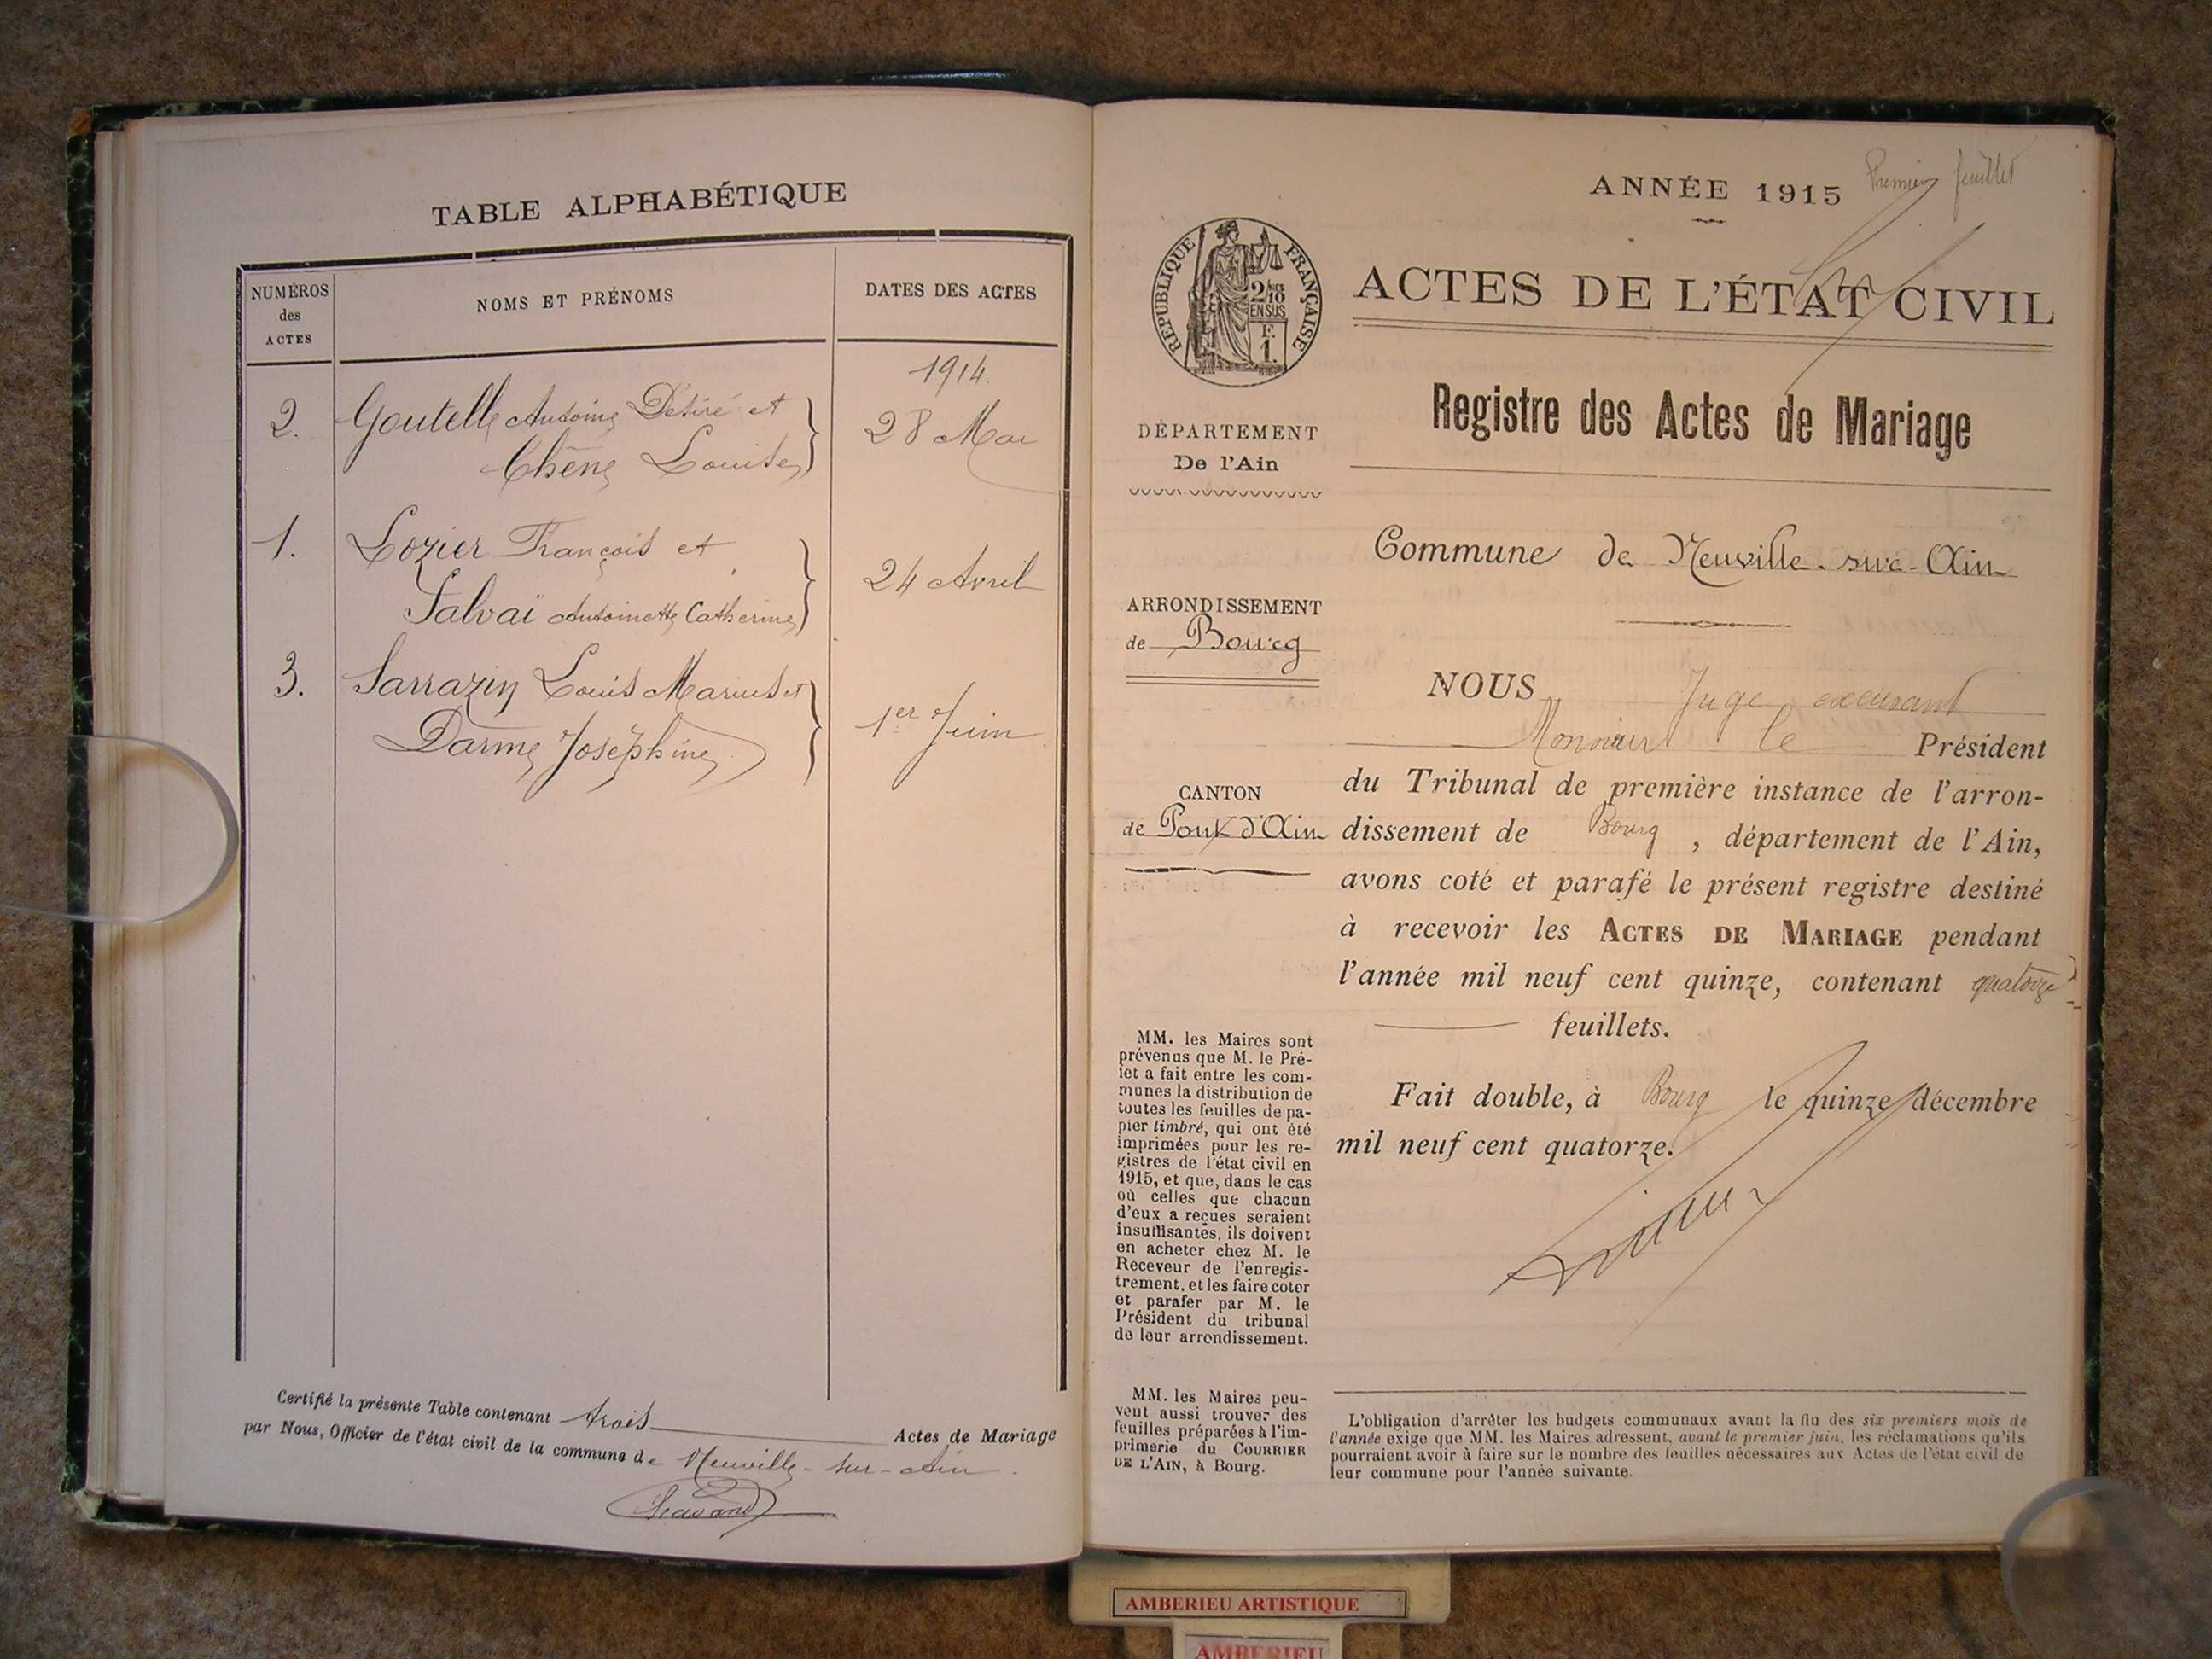 TABLE ALPHABÉTIQUE
NUMÉROS
des
ACTES
NOMS ET PRÉNOMS
DATES DES ACTES
1914.
2. Goutelle Antoine Désiré et
Chêne Louise
28 Mai
1. Lozier François et
Salvaï Antoinette Catherine
24 Avril
3. Sarrazin Louis Marius et
Darme Joséphine
1er Juin
Certifié la présente Table contenant trois Actes de Mariage
par Nous, Officier de l'état civil de la commune de Neuville-sur-Ain.
ANNÉE 1915
Premier feuillet
RÉPUBLIQUE FRANÇAISE
2/10
EN SUS
F.
1.
ACTES DE L'ÉTAT CIVIL
Registre des Actes de Mariage
DÉPARTEMENT
De l'Ain
Commune de Neuville-sur-Ain
ARRONDISSEMENT
de Bourg
CANTON
de Pont d'Ain
NOUS Juge
Monsieur le Président
du Tribunal de première instance de l'arron-
dissement de Bourg, département de l'Ain,
avons coté et parafé le présent registre destiné
à recevoir les ACTES DE MARIAGE pendant
l'année mil neuf cent quinze, contenant quatorze
feuillets.
Fait double, à Bourg le quinze décembre
mil neuf cent quatorze.
MM. les Maires sont
prévenus que M. le Pré-
fet a fait entre les com-
munes la distribution de
toutes les feuilles de pa-
pier timbré, qui ont été
imprimées pour les re-
gistres de l'état civil en
1915, et que, dans le cas
où celles que chacun
d'eux a reçues seraient
insuffisantes, ils doivent
en acheter chez M. le
Receveur de l'enregis-
trement, et les faire coter
et parafer par M. le
Président du tribunal
de leur arrondissement.
MM. les Maires peu-
vent aussi trouver des
feuilles préparées à l'im-
primerie du COURRIER
DE L'AIN, à Bourg.
L'obligation d'arrêter les budgets communaux avant la fin des six premiers mois de
l'année exige que MM. les Maires adressent, avant le premier juin, les réclamations qu'ils
pourraient avoir à faire sur le nombre des feuilles nécessaires aux Actes de l'état civil de
leur commune pour l'année suivante.
AMBERIEU ARTISTIQUE
AMBERIEU